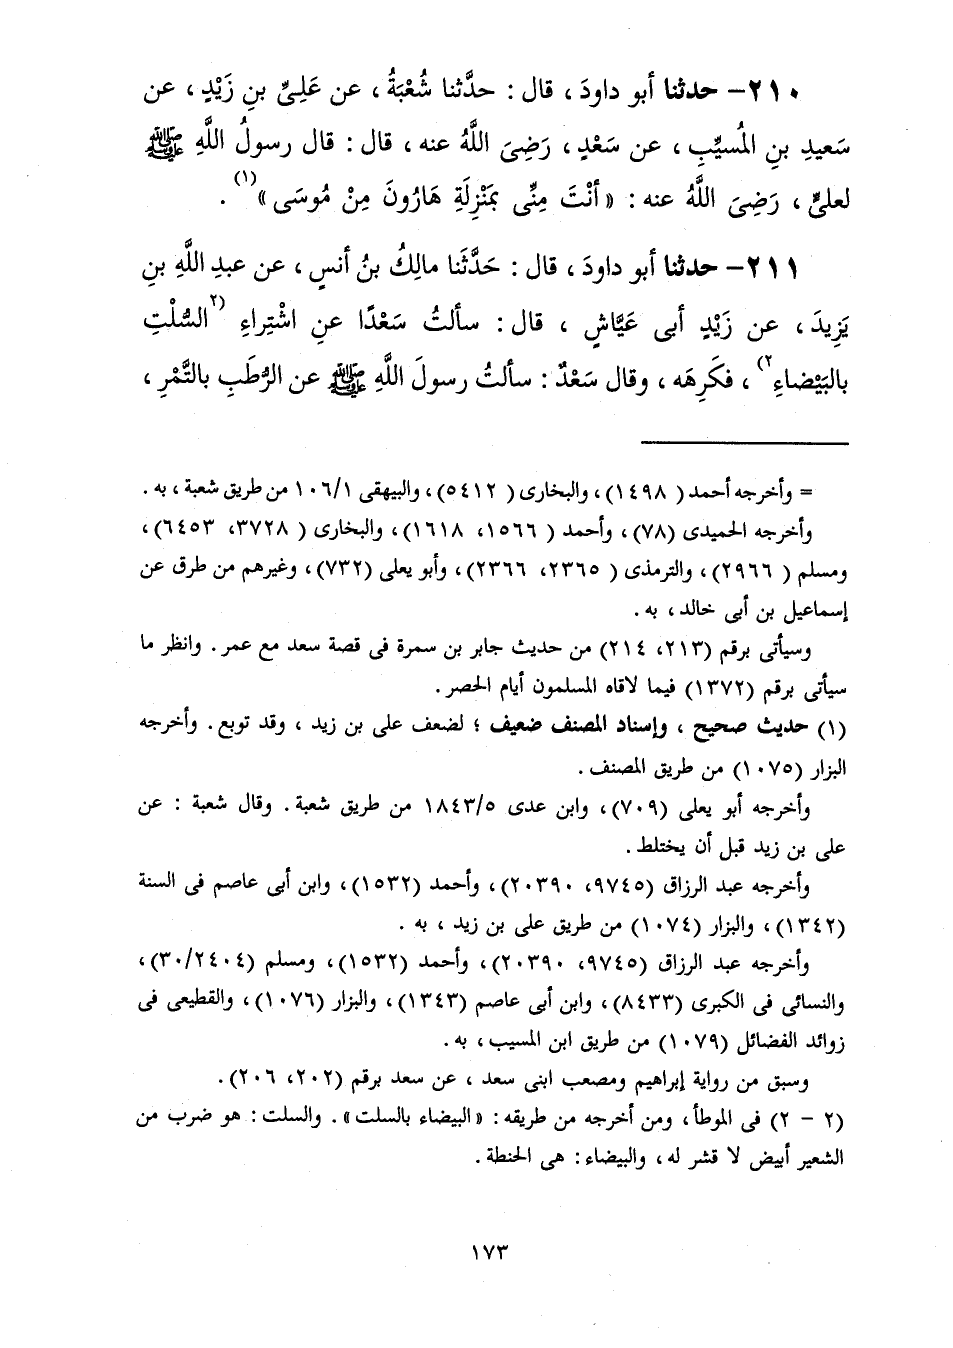 ٢١٠- حدثنا أبو داودَ ، قال : حدَّثنا شُعْبَةُ ، عن عَلِىِّ بنِ زَيْدٍ ، عن
سَعيدِ بنِ المُسيِّبِ ، عن سَعْدٍ ، رَضِىَ اللَّهُ عنه ، قال : قال رسولُ اللَّهِ ﷺ
لعلىٍّ ، رَضِىَ اللَّهُ عنه : « أنْتَ مِنِّى بمَنْزِلَةِ هَارُونَ مِنْ مُوسَى »(١) .
٢١١- حدثنا أبو داودَ ، قال : حَدَّثَنا مالكُ بنُ أنسٍ ، عن عبدِ اللَّهِ بنِ
يَزِيدَ ، عن زَيْدٍ أبى عَيَّاشٍ ، قال : سألتُ سَعْدًا عنِ اشْتِراءِ (٢السُّلْتِ
بالبَيْضاءِ٢) ، فكَرِهَه ، وقال سَعْدٌ : سألتُ رسولَ اللَّهِ ﷺ عن الرُّطَبِ بالتَّمْرِ ،
= وأخرجه أحمد ( ١٤٩٨) ، والبخارى ( ٥٤١٢) ، والبيهقى ١٠٦/١ من طريق شعبة ، به .
وأخرجه الحميدى (٧٨) ، وأحمد ( ١٥٦٦، ١٦١٨) ، والبخارى ( ٣٧٢٨، ٦٤٥٣) ،
ومسلم ( ٢٩٦٦) ، والترمذى ( ٢٣٦٥، ٢٣٦٦) ، وأبو يعلى (٧٣٢) ، وغيرهم من طرق عن
إسماعيل بن أبى خالد ، به .
وسيأتى برقم (٢١٣، ٢١٤) من حديث جابر بن سمرة فى قصة سعد مع عمر . وانظر ما
سيأتى برقم (١٣٧٢) فيما لاقاه المسلمون أيام الحصر .
(١) حديث صحيح ، وإسناد المصنف ضعيف ؛ لضعف على بن زيد ، وقد توبع . وأخرجه
البزار (١٠٧٥) من طريق المصنف .
وأخرجه أبو يعلى (٧٠٩) ، وابن عدى ١٨٤٣/٥ من طريق شعبة . وقال شعبة : عن
على بن زيد قبل أن يختلط .
وأخرجه عبد الرزاق (٩٧٤٥، ٢٠٣٩٠) ، وأحمد (١٥٣٢) ، وابن أبى عاصم فى السنة
(١٣٤٢) ، والبزار (١٠٧٤) من طريق على بن زيد ، به .
وأخرجه عبد الرزاق (٩٧٤٥، ٢٠٣٩٠) ، وأحمد (١٥٣٢) ، ومسلم (٣٠/٢٤٠٤) ،
والنسائى فى الكبرى (٨٤٣٣) ، وابن أبى عاصم (١٣٤٣) ، والبزار (١٠٧٦) ، والقطيعى فى
زوائد الفضائل (١٠٧٩) من طريق ابن المسيب ، به .
وسبق من رواية إبراهيم ومصعب ابنى سعد ، عن سعد برقم (٢٠٢، ٢٠٦) .
(٢ - ٢) فى الموطأ ، ومن أخرجه من طريقه : « البيضاء بالسلت » . والسلت : هو ضرب من
الشعير أبيض لا قشر له ، والبيضاء : هى الحنطة .
١٧٣